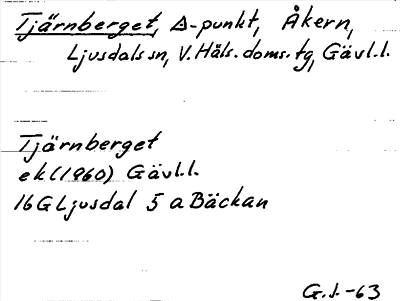 Tjärnberget, Δ-punkt, Åkern,
Ljusdals sn, V. Häls. doms. tg, Gävl.l.
Tjärnberget
ek(1960) Gävl.l.
16G Ljusdal 5 a Bäckan
G.J.-63